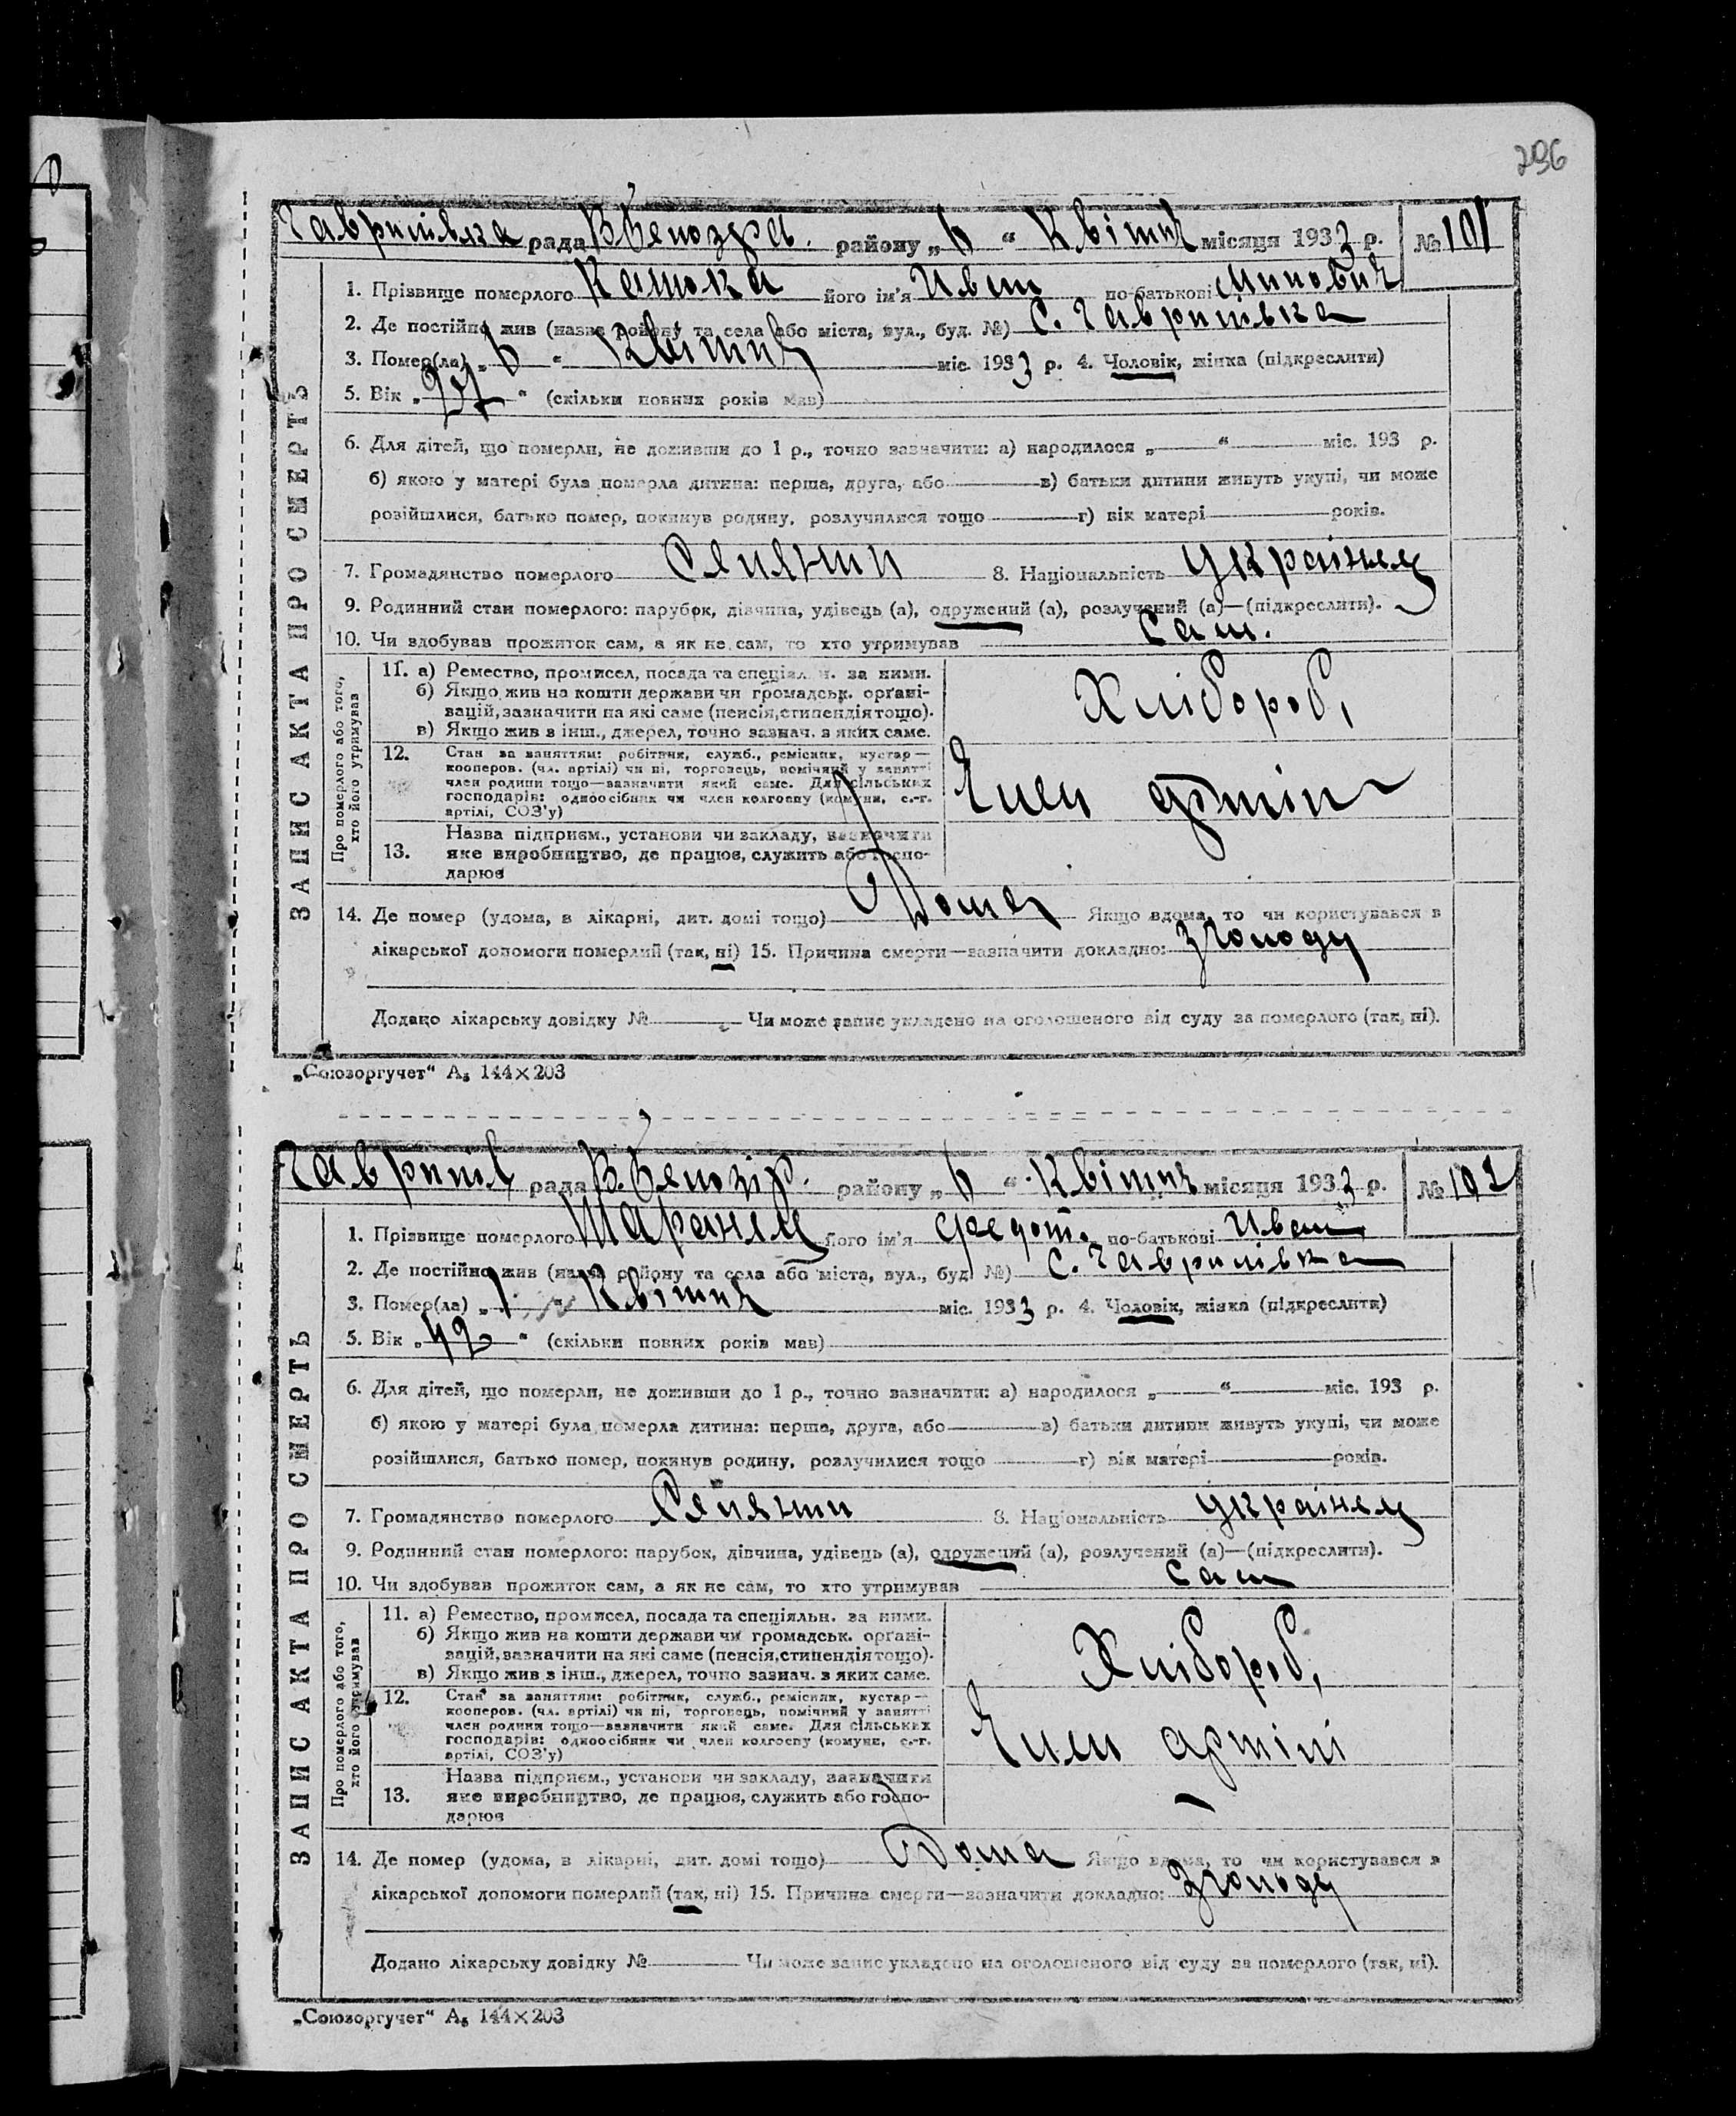 296
Гаврилівка рада В.Білозерка. району „6“ Квітня місяця 1933 р. № 101
1. Прізвище померлого його ім'я Иван по-батькові
2. Де постійно жив (назва району та села або міста, вул., буд. №) С. Гаврилівка
3. Помер(ла) „6“ Квітня міс. 1933 р. 4. Чоловік, жінка (підкреслити)
5. Вік „ “ (скільки повних років мав)
6. Для дітей, що померли, не доживши до 1 р., точно зазначити: а) народилося „ “ міс. 193 р.
б) якою у матері була померла дитина: перша, друга, або в) батьки дитини живуть укупі, чи може
розійшлися, батько помер, покинув родину, розлучилися тощо г) вік матері років.
7. Громадянство померлого Селянин 8. Національність Українец
9. Родинний стан померлого: парубок, дівчина, удівець (а), одружений (а), розлучений (а)—(підкреслити).
10. Чи здобував прожиток сам, а як не сам, то хто утримував Сам.
ЗАПИС АКТА ПРО СМЕРТЬ
Про померлого або того, хто його утримував
11. а) Ремество, промисел, посада та спеціяльн. за ними.
б) Якщо жив на кошти держави чи громадськ. орґані-
зацій, зазначити на які саме (пенсія, стипендія тощо).
в) Якщо жив з інш., джерел, точно зазнач. з яких саме.
Хлібороб,
12. Стан за заняттям: робітник, служб., ремісник, кустар—
кооперов. (чл. артілі) чи ні, торговець, помічний у занятті
член родини тощо—зазначити який саме. Для сільських
господарів: одноосібник чи член колгоспу (комуни, с.-г.
артілі, СОЗ'у)
Член артіли
13. Назва підприєм., установи чи закладу, зазначити
яке виробництво, де працює, служить або госпо-
дарює
14. Де помер (удома, в лікарні, дит. домі тощо) Дома Якщо вдома, то чи користувався з
лікарської допомоги померлий (так, ні) 15. Причина смерти—зазначити докладно: З голоду
Додано лікарську довідку № Чи може запис укладено на оголошеного від суду за померлого (так, ні).
„Союзоргучет“ А₅ 144×203
Гаврилів рада В.Білозір. району „6“ Квітня місяця 1933 р. № 102
1. Прізвище померлого Таранец його ім'я Федот. по-батькові Иван
2. Де постійно жив (назва району та села або міста, вул., буд. №) С. Гаврилівка
3. Помер(ла) „1“ Квітня міс. 1933 р. 4. Чоловік, жінка (підкреслити)
5. Вік „42“ (скільки повних років мав)
6. Для дітей, що померли, не доживши до 1 р., точно зазначити: а) народилося „ “ міс. 193 р.
б) якою у матері була померла дитина: перша, друга, або в) батьки дитини живуть укупі, чи може
розійшлися, батько помер, покинув родину, розлучилися тощо г) вік матері років.
7. Громадянство померлого Селянин 8. Національність Українец
9. Родинний стан померлого: парубок, дівчина, удівець (а), одружений (а), розлучений (а)—(підкреслити).
10. Чи здобував прожиток сам, а як не сам, то хто утримував Сам
ЗАПИС АКТА ПРО СМЕРТЬ
Про померлого або того, хто його утримував
11. а) Ремество, промисел, посада та спеціяльн. за ними.
б) Якщо жив на кошти держави чи громадськ. орґані-
зацій, зазначити на які саме (пенсія, стипендія тощо).
в) Якщо жив з інш., джерел, точно зазнач. з яких саме.
Хлібороб,
12. Стан за заняттям: робітник, служб., ремісник, кустар—
кооперов. (чл. артілі) чи ні, торговець, помічний у занятті
член родини тощо—зазначити який саме. Для сільських
господарів: одноосібник чи член колгоспу (комуни, с.-г.
артілі, СОЗ'у)
Член артілі
13. Назва підприєм., установи чи закладу, зазначити
яке виробництво, де працює, служить або госпо-
дарює
14. Де помер (удома, в лікарні, дит. домі тощо) Дома Якщо вдома, то чи користувався з
лікарської допомоги померлий (так, ні) 15. Причина смерти—зазначити докладно: З голоду
Додано лікарську довідку № Чи може запис укладено на оголошеного від суду за померлого (так, ні).
„Союзоргучет“ А₅ 144×203